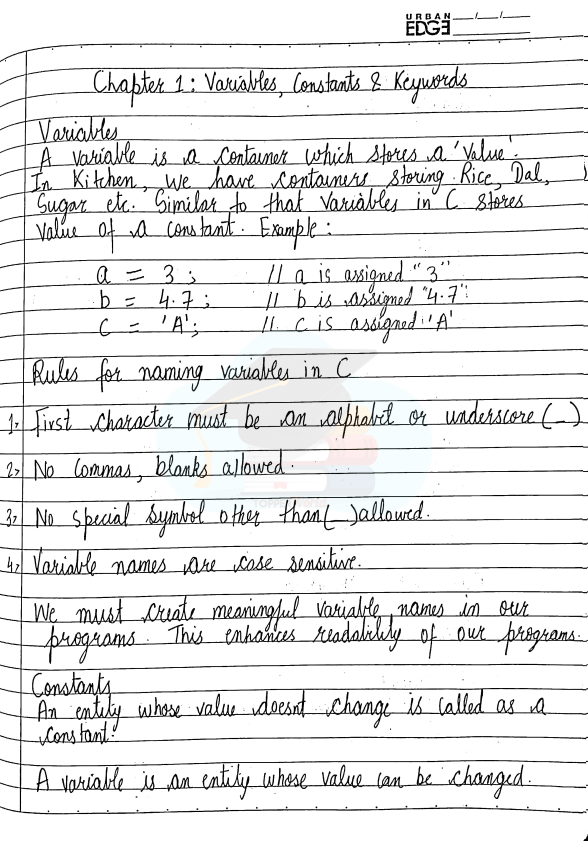 URBAN
EDGE
Chapter 1 : Variables, Constants & Keywords
Variables
A variable is a container which stores a 'value'.
In Kitchen, we have containers storing Rice, Dal,
Sugar etc. Similar to that variables in C stores
value of a constant. Example :
a = 3 ; // a is assigned "3"
b = 4.7 ; // b is assigned "4.7"
c = 'A'; // c is assigned 'A'
Rules for naming variables in C
1> First character must be an alphabet or underscore (_)
2> No commas, blanks allowed.
3> No special symbol other than (_) allowed.
4> Variable names are case sensitive.
We must create meaningful variable names in our
programs. This enhances readability of our programs.
Constants
An entity whose value doesnt change is called as a
constant.
A variable is an entity whose value can be changed.